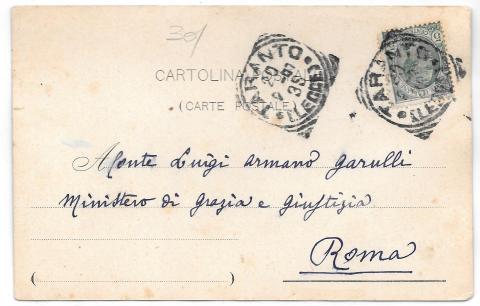 30/
CARTOLINA
(CARTE POSTALE)
TARANTO
(LECCE)
TARANTO
(LECCE)
Al Conte Luigi Armano Garulli
Ministero di Grazia e Giustizia
Roma
( )